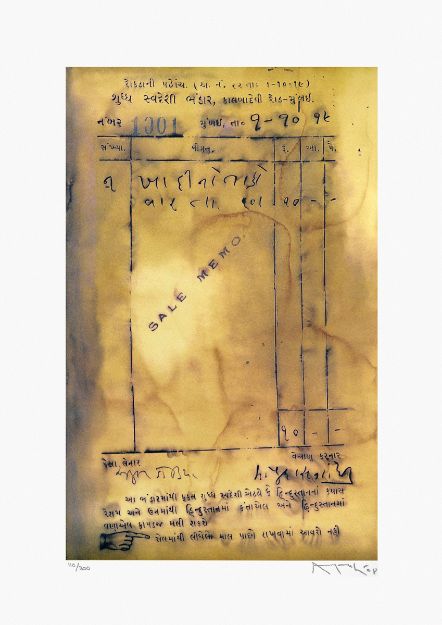 રોકડાની પહોંચ. (આ. નં. ૯૨ તા. ૧-૧૦-૧૯)
શુધ્ધ સ્વદેશી ભંડાર, કાલબાદેવી રોડ-મુંબઈ.
નંબર 1001 મુંબઈ, તા૦ ૧-૧૦ ૧૯
સંખ્યા. વીગત. રૂ. આ. પૈ.
૧ ખાદીનો
વાર ૧૦ - -
SALE MEMO.
૧૦ - -
પૈસા લેનાર વેચાણ કરનાર
આ ભંડારમાંથી ફક્ત શુધ્ધ સ્વદેશી એટલે કે હિન્દુસ્તાનનાં કપાસ
રેશમ અને ઉનમાંથી હિન્દુસ્તાનમાં કંતાએલ અને હિન્દુસ્તાનમાં
વણાએલ કાપડજ મલી શકશે
વેચેલો માલ પાછો રાખવામાં આવશે નહીં
110/200